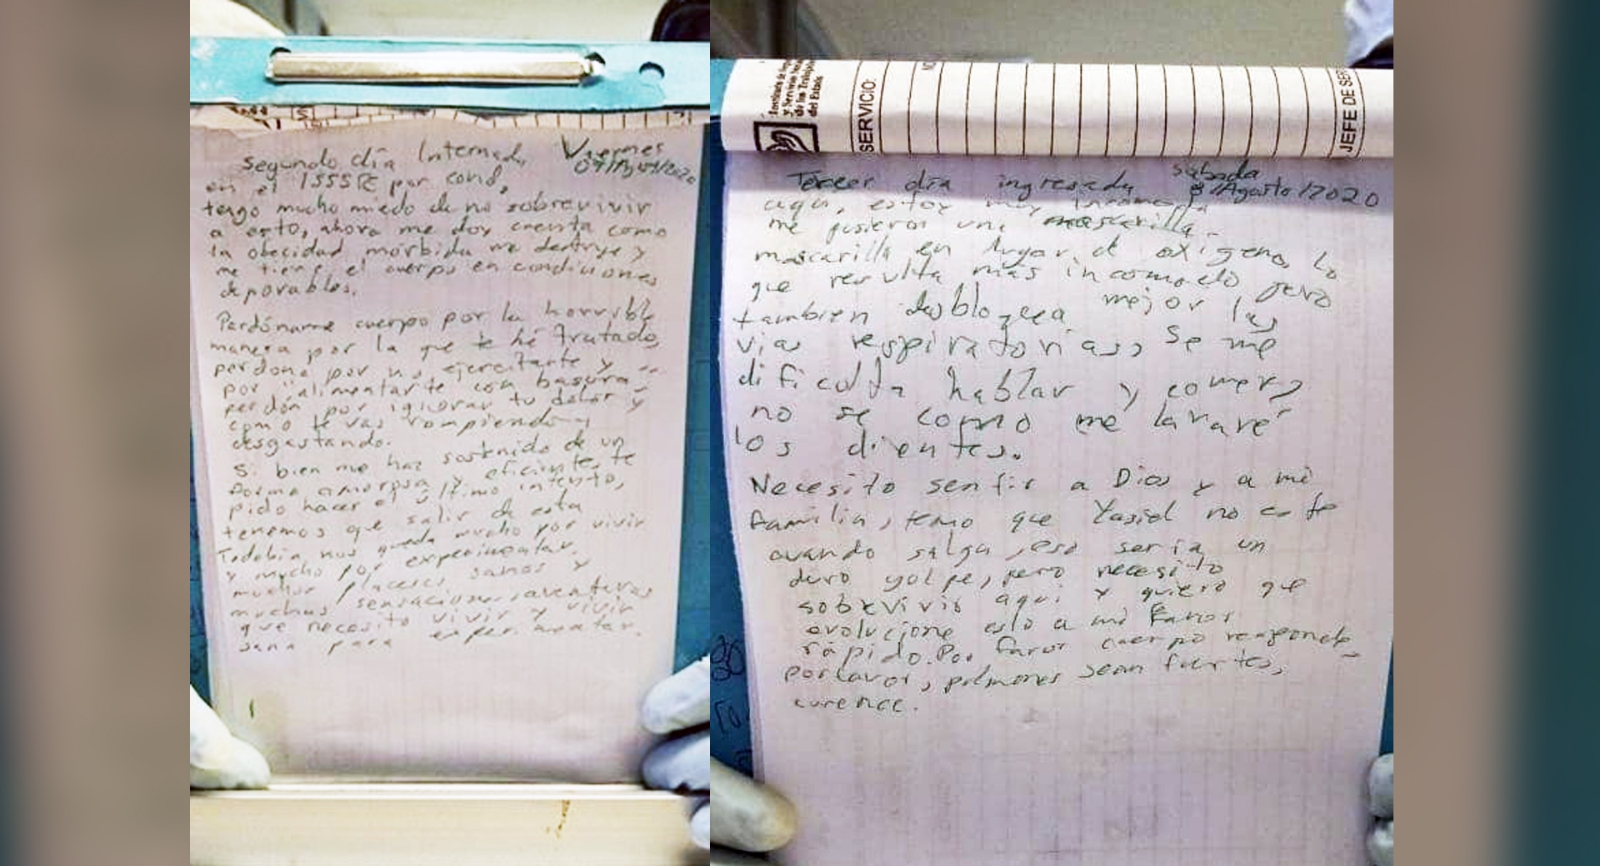 Segundo día Internada Viernes
en el ISSSTE por covid,
tengo mucho miedo de no sobrevivir
a esto, ahora me doy cuenta como
la obecidad mórbida me destruye y
me tiene el cuerpo en condiciones
deporables.
Perdóname cuerpo por la horrible
manera por la que te hé tratado,
perdona por no ejercitarte y
por "alimentarte con basura"
perdón por ignorar tu dolor y
como te vas rompiendo y
desgastando.
Si bien me haz sostenido de un
forma amorosa y eficiente, te
pido hacer el último intento,
tenemos que salir de esta
Todabía nos queda mucho por vivir
y mucho por experimentar,
muchos placeres sanos y
muchas sensaciones, aventuras
que necesito vivir y vivir
sana para experimentar.
Instituto de
y Servicios
de los Trabajadores
del Estado
SERVICIO:
JEFE DE SER
Tercer día ingresada sábado
8/Agosto/2020
aqui, estoy muy incomoda
me pusieron una mascarilla
mascarilla en lugar de oxígeno, lo
que resulta más incomodo pero
tambien desbloquea mejor las
vias respiratorias, se me
dificulta hablar y comer,
no se como me lavaré
los dientes.
Necesito sentir a Dios y a mi
familia, temo que Yasiel no este
cuando salga, eso seria un
duro golpe, pero necesito
sobrevivir aqui y quiero que
evolucione esto a mi favor
rápido. Por favor cuerpo responde
por favor, pulmones sean fuertes,
curence.